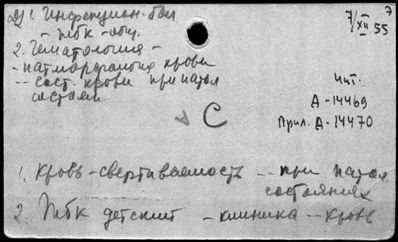 1. Инфекцион. бол
- тбк - общ.
2. Гематология -
- патморфология крови
-- сост. крови при патол
состоян
7/XII 55
7
Чит.
Д-14469
Прил. Д-14470
С
1. Кровь - свертываемость -- при патол
состояниях
2. Тбк детский - клиника -- кровь